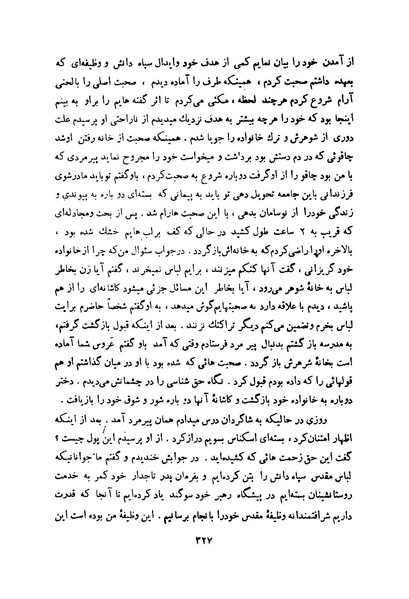 از آمدن خود را بیان نمایم کمی از هدف خود وایدال سپاه دانش و وظیفه‌ای که
بعهده داشتم صحبت کردم ، همینکه طرف را آماده دیدم ، صحبت اصلی را بالحنی
آرام شروع کردم هر چند لحظه ، مکثی می‌کردم تا اثر گفته هایم را براو به بینم
اینجا بود که خود را هرچه بیشتر به هدف نزدیك میدیدم از ناراحتی او پرسیدم علت
دوری از شوهرش و ترك خانواده را جویا شدم . همینکه صحبت از خانه رفتن اوشد
چاقوئی که در دم دستش بود برداشت و میخواست خود را مجروح نماید پیرمردی که
با من بود چاقو را از اوگرفت دوباره شروع به صحبت‌کردم ، باوگفتم توباید مادرشوی
فرزندانی باین جامعه تحویل دهی تو باید به پیمانی که بسته‌ای دوباره به پیوندی و
زندگی خودرا از نوسامان بدهی ، با این صحبت هارام شد . پس از بحث ومجادله‌ای
که قریب به ۲ ساعت طول کشید در حالی که کف برلب هایم خشك شده بود ،
بالاخره اورا راضی کردم که به خانه‌اش بازگردد . درجواب سئوال من‌که چرا ازخانواده
خود گریزانی ، گفت آنها کتکم میزنند ، برایم لباس نمیخرند ، گفتم آیا زن بخاطر
لباس به خانهٔ شوهر می‌رود ، آیا بخاطر این مسائل جزئی میشود کاشانه‌ای را از هم
پاشید ، دیدم با علاقه دارد به صحبتهایم گوش میدهد ، به اوگفتم شخصاً حاضرم برایت
لباس بخرم وتضمین می‌کنم دیگر تراکتك نزنند . بعد از اینکه قبول بازگشت گرفتم،
به مدرسه باز گشتم بدنبال پیر مرد فرستادم وقتی که آمد باو گفتم عروس شما آماده
است بخانهٔ شوهرش باز گردد. صحبت هائی که شده بود با او در میان گذاشتم او هم
قولهائی را که داده بودم قبول کرد . نگاه حق شناسی را در چشمانش می‌دیدم . دختر
دوباره به خانواده خود بازگشت و کاشانهٔ آنها دو باره شور و شوق خود را بازیافت .
روزی در حالیکه به شاگردان درس میدادم همان پیرمرد آمد . بعد از اینکه
اظهار امتنان‌کرد ، بسته‌ای اسکناس بسویم درازکرد . از او پرسیدم این پول چیست ؟
گفت این حق زحمت هائی که کشیده‌اید . در جوابش خندیدم و گفتم ما جوانانیکه
لباس مقدس سپاه دانش را بتن کرده‌ایم و بفرمان پدر تاجدار خود کمر به خدمت
روستانشینان بسته‌ایم در پیشگاه رهبر خود سوگند یاد کرده‌ایم تا آنجا که قدرت
داریم شرافتمندانه وظیفهٔ مقدس خودرا بانجام برسانیم . این وظیفهٔ من بوده است این
۳۲۷